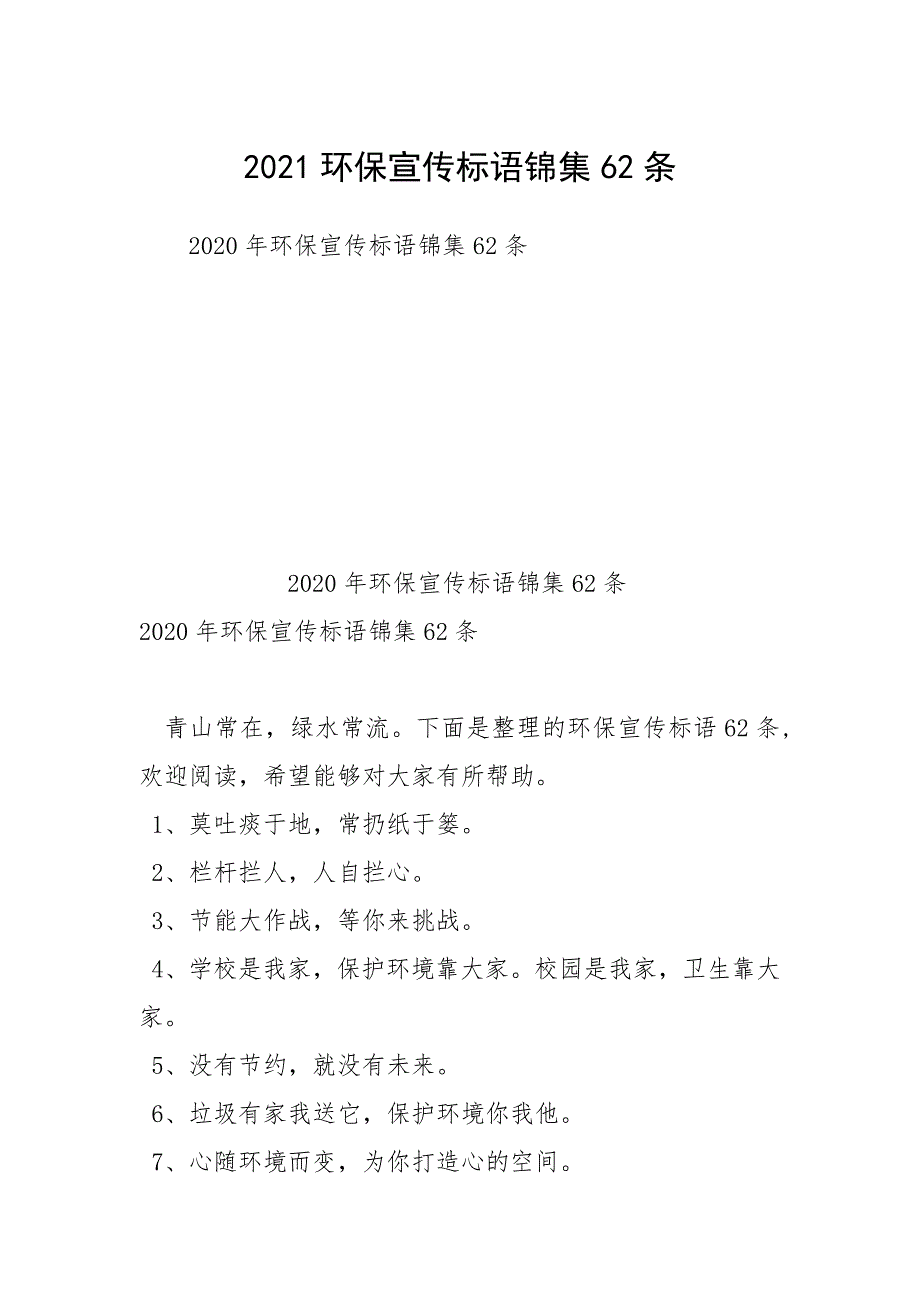 2021环保宣传标语锦集62条
2020年环保宣传标语锦集62条
2020年环保宣传标语锦集62条
2020年环保宣传标语锦集62条
青山常在，绿水常流。下面是整理的环保宣传标语62条，
欢迎阅读，希望能够对大家有所帮助。
1、莫吐痰于地，常扔纸于篓。
2、栏杆拦人，人自拦心。
3、节能大作战，等你来挑战。
4、学校是我家，保护环境靠大家。校园是我家，卫生靠大
家。
5、没有节约，就没有未来。
6、垃圾有家我送它，保护环境你我他。
7、心随环境而变，为你打造心的空间。